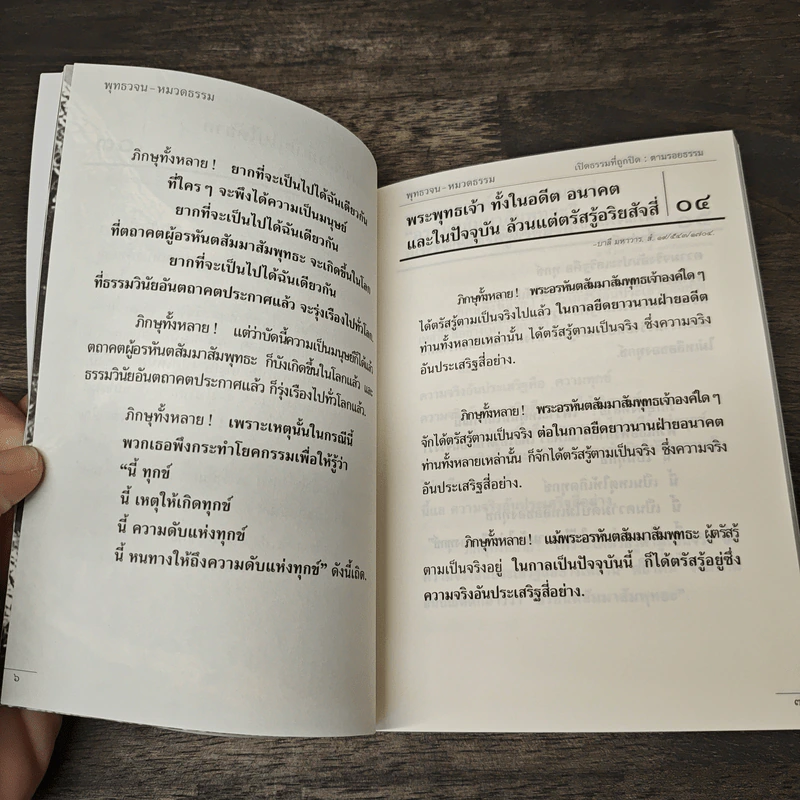 พุทธวจน - หมวดธรรม
ภิกษุทั้งหลาย ! ยากที่จะเป็นไปได้ฉันเดียวกัน
ที่ใครๆ จะพึงได้ความเป็นมนุษย์
ยากที่จะเป็นไปได้ฉันเดียวกัน
ที่ตถาคตผู้อรหันตสัมมาสัมพุทธะ จะเกิดขึ้นในโลก
ยากที่จะเป็นไปได้ฉันเดียวกัน
ที่ธรรมวินัยอันตถาคตประกาศแล้ว จะรุ่งเรืองไปทั่วโลก.
ภิกษุทั้งหลาย ! แต่ว่าบัดนี้ความเป็นมนุษย์ก็ได้แล้ว
ตถาคตผู้อรหันตสัมมาสัมพุทธะ ก็บังเกิดขึ้นในโลกแล้ว และ
ธรรมวินัยอันตถาคตประกาศแล้ว ก็รุ่งเรืองไปทั่วโลกแล้ว.
ภิกษุทั้งหลาย ! เพราะเหตุนั้นในกรณีนี้
พวกเธอพึงกระทำโยคกรรมเพื่อให้รู้ว่า
“นี้ ทุกข์
นี้ เหตุให้เกิดทุกข์
นี้ ความดับแห่งทุกข์
นี้ หนทางให้ถึงความดับแห่งทุกข์” ดังนี้เถิด.
๖
พุทธวจน - หมวดธรรม
เปิดธรรมที่ถูกปิด : ตามรอยธรรม
พระพุทธเจ้า ทั้งในอดีต อนาคต
และในปัจจุบัน ล้วนแต่ตรัสรู้อริยสัจสี่
๐๔
-บาลี มหาวาร. สํ. ๑๙/๕๔๓/๑๗๐๔.
ภิกษุทั้งหลาย ! พระอรหันตสัมมาสัมพุทธเจ้าองค์ใดๆ
ได้ตรัสรู้ตามเป็นจริงไปแล้ว ในกาลยืดยาวนานฝ่ายอดีต
ท่านทั้งหลายเหล่านั้น ได้ตรัสรู้ตามเป็นจริง ซึ่งความจริง
อันประเสริฐสี่อย่าง.
ภิกษุทั้งหลาย ! พระอรหันตสัมมาสัมพุทธเจ้าองค์ใดๆ
จักได้ตรัสรู้ตามเป็นจริง ต่อในกาลยืดยาวนานฝ่ายอนาคต
ท่านทั้งหลายเหล่านั้น ก็จักได้ตรัสรู้ตามเป็นจริง ซึ่งความจริง
อันประเสริฐสี่อย่าง.
ภิกษุทั้งหลาย ! แม้พระอรหันตสัมมาสัมพุทธะ ผู้ตรัสรู้
ตามเป็นจริงอยู่ ในกาลเป็นปัจจุบันนี้ ก็ได้ตรัสรู้อยู่ซึ่ง
ความจริงอันประเสริฐสี่อย่าง.
๗